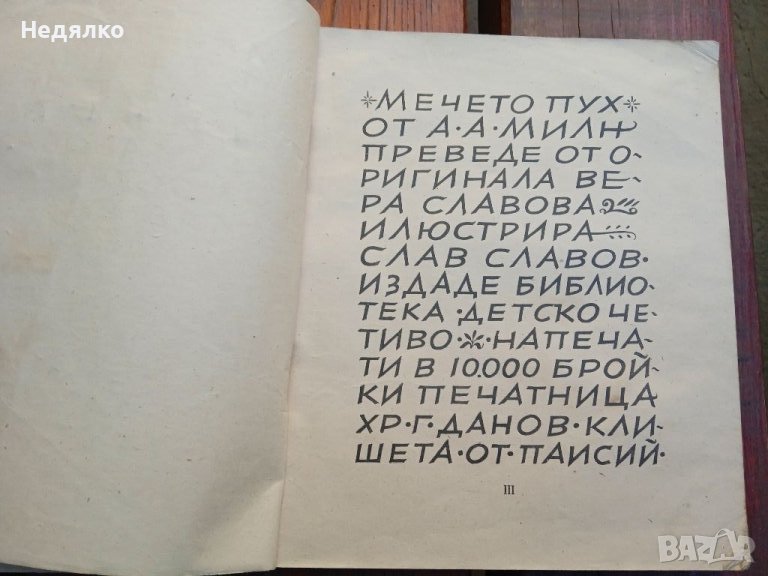 Недялко
МЕЧЕТО ПУХ
ОТ А·А·МИЛН
ПРЕВЕДЕ ОТ О-
РИГИНАЛА ВЕ-
РА СЛАВОВА
ИЛЮСТРИРА
СЛАВ СЛАВОВ·
ИЗДАДЕ БИБЛИО-
ТЕКА·ДЕТСКО ЧЕ-
ТИВО·НАПЕЧА-
ТИ В 10.000 БРОЙ-
КИ ПЕЧАТНИЦА
ХР·Г·ДАНОВ·КЛИ-
ШЕТА·ОТ·ПАИСИЙ·
III
BAZAR